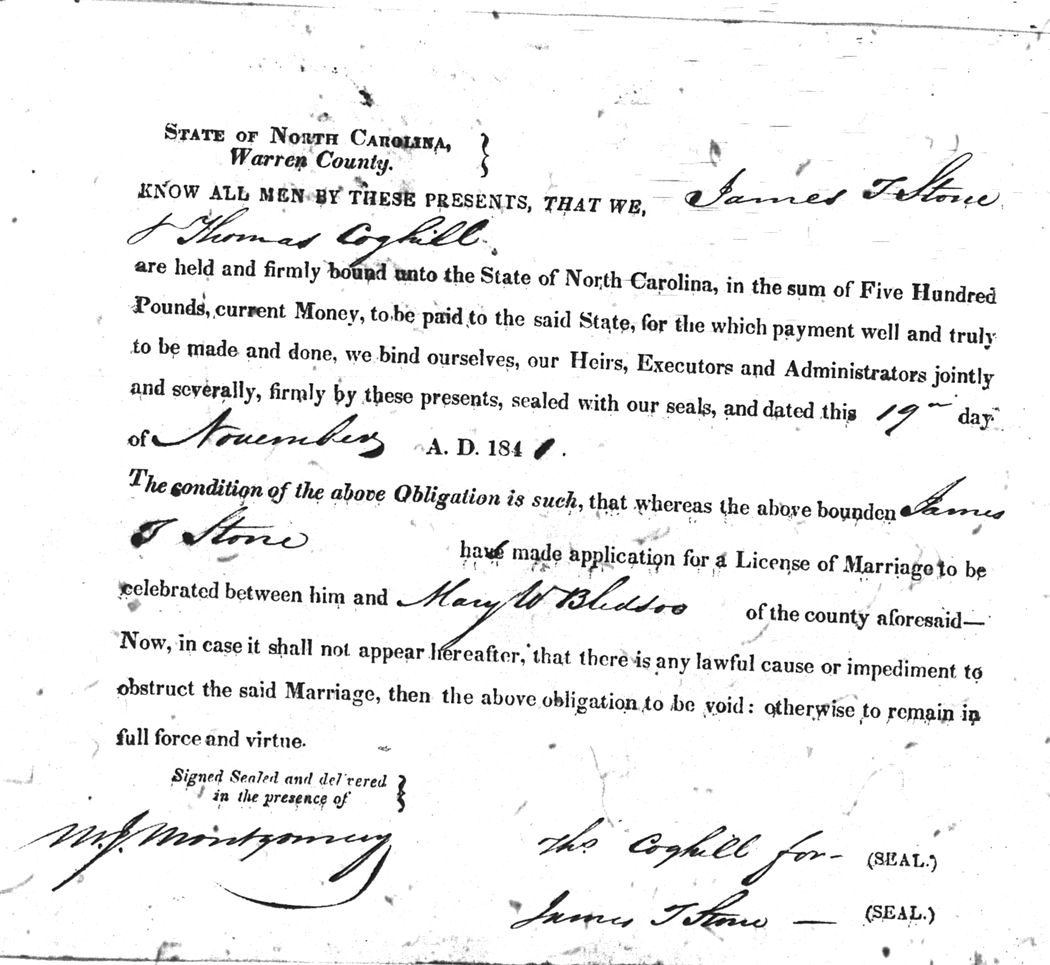 STATE OF NORTH CAROLINA,
Warren County.
KNOW ALL MEN BY THESE PRESENTS, THAT WE, James T Stone
& Thomas Coghill
are held and firmly bound unto the State of North Carolina, in the sum of Five Hundred
Pounds, current Money, to be paid to the said State, for the which payment well and truly
to be made and done, we bind ourselves, our Heirs, Executors and Administrators jointly
and severally, firmly by these presents, sealed with our seals, and dated this 19th day
of November A. D. 1841.
The condition of the above Obligation is such, that whereas the above bounden James
T Stone have made application for a License of Marriage to be
celebrated between him and Mary W Bledsoe of the county aforesaid—
Now, in case it shall not appear hereafter, that there is any lawful cause or impediment to
obstruct the said Marriage, then the above obligation to be void: otherwise to remain in
full force and virtue.
Signed Sealed and delivered
in the presence of
M. J. Montgomery
Thos Coghill for- (SEAL.)
James T Stone — (SEAL.)